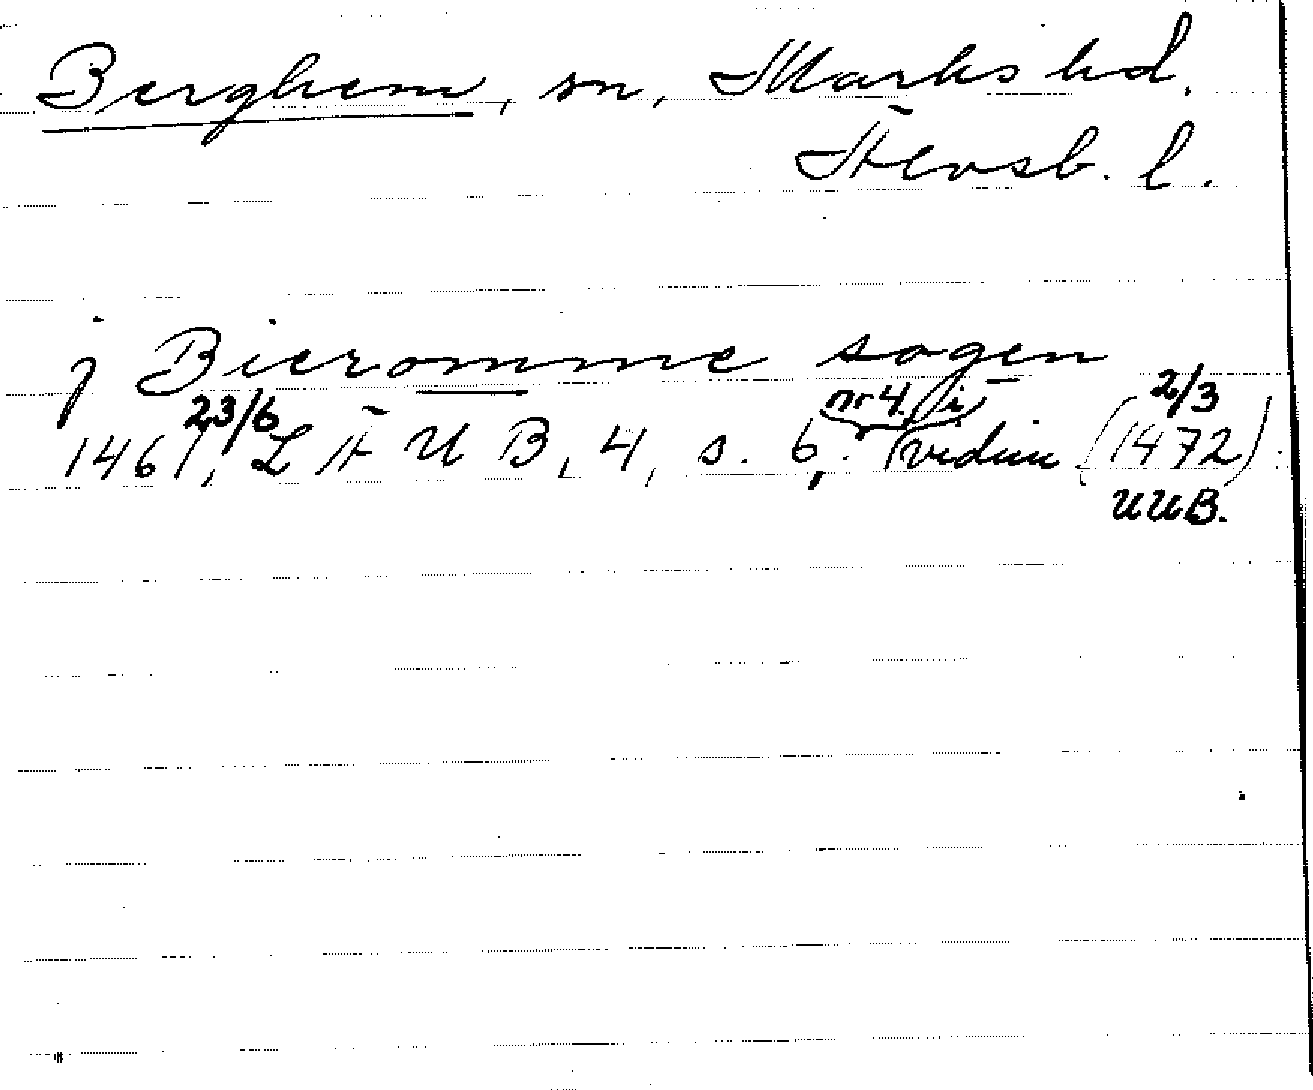 Berghem, sn, Marks hd.
Älvsb. l.
j Bieromme sogen
23/6 nr 4. (i 2/3
1461, L Ä U B, 4, s. 6, (vidim (1472)
UUB.